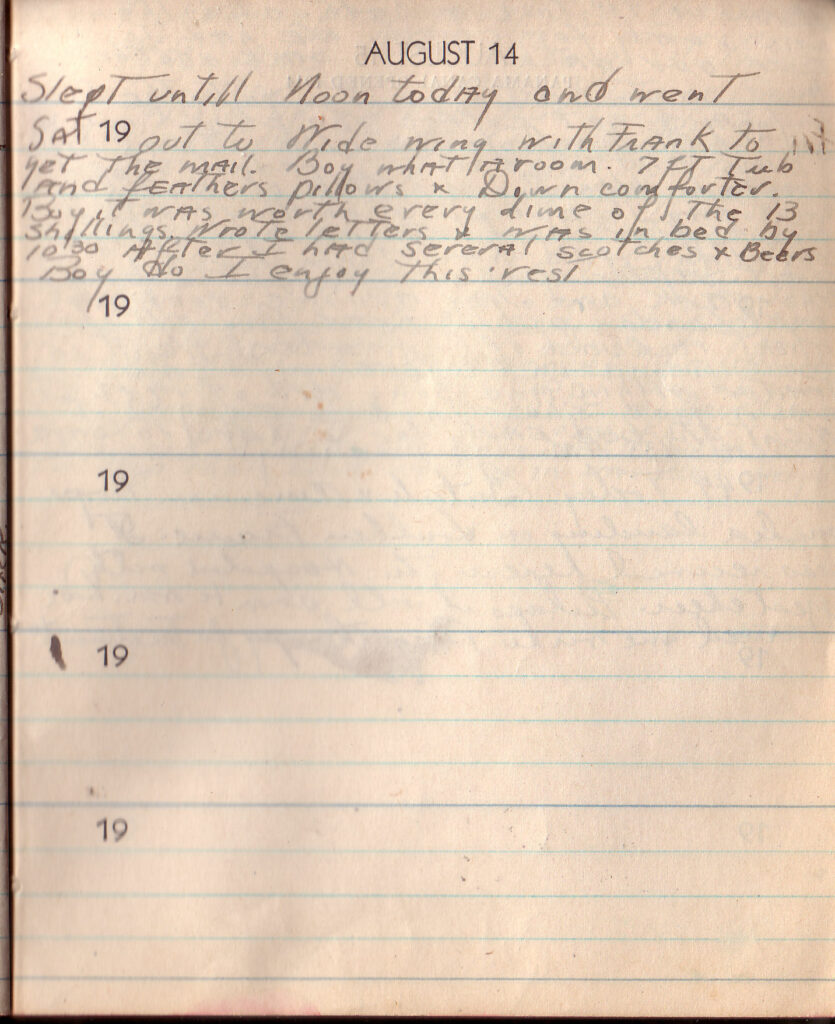 AUGUST 14
Slept untill Noon today and went
Sat 19 out to Wide wing with Frank to
get the mail. Boy what a room. 7ft Tub
and feathers pillows x Down comforter.
Boy it was worth every dime of the 13
shillings. Wrote letters x was in bed by
10:30 After I had several scotches x Beers
Boy do I enjoy this rest
19
19
19
19